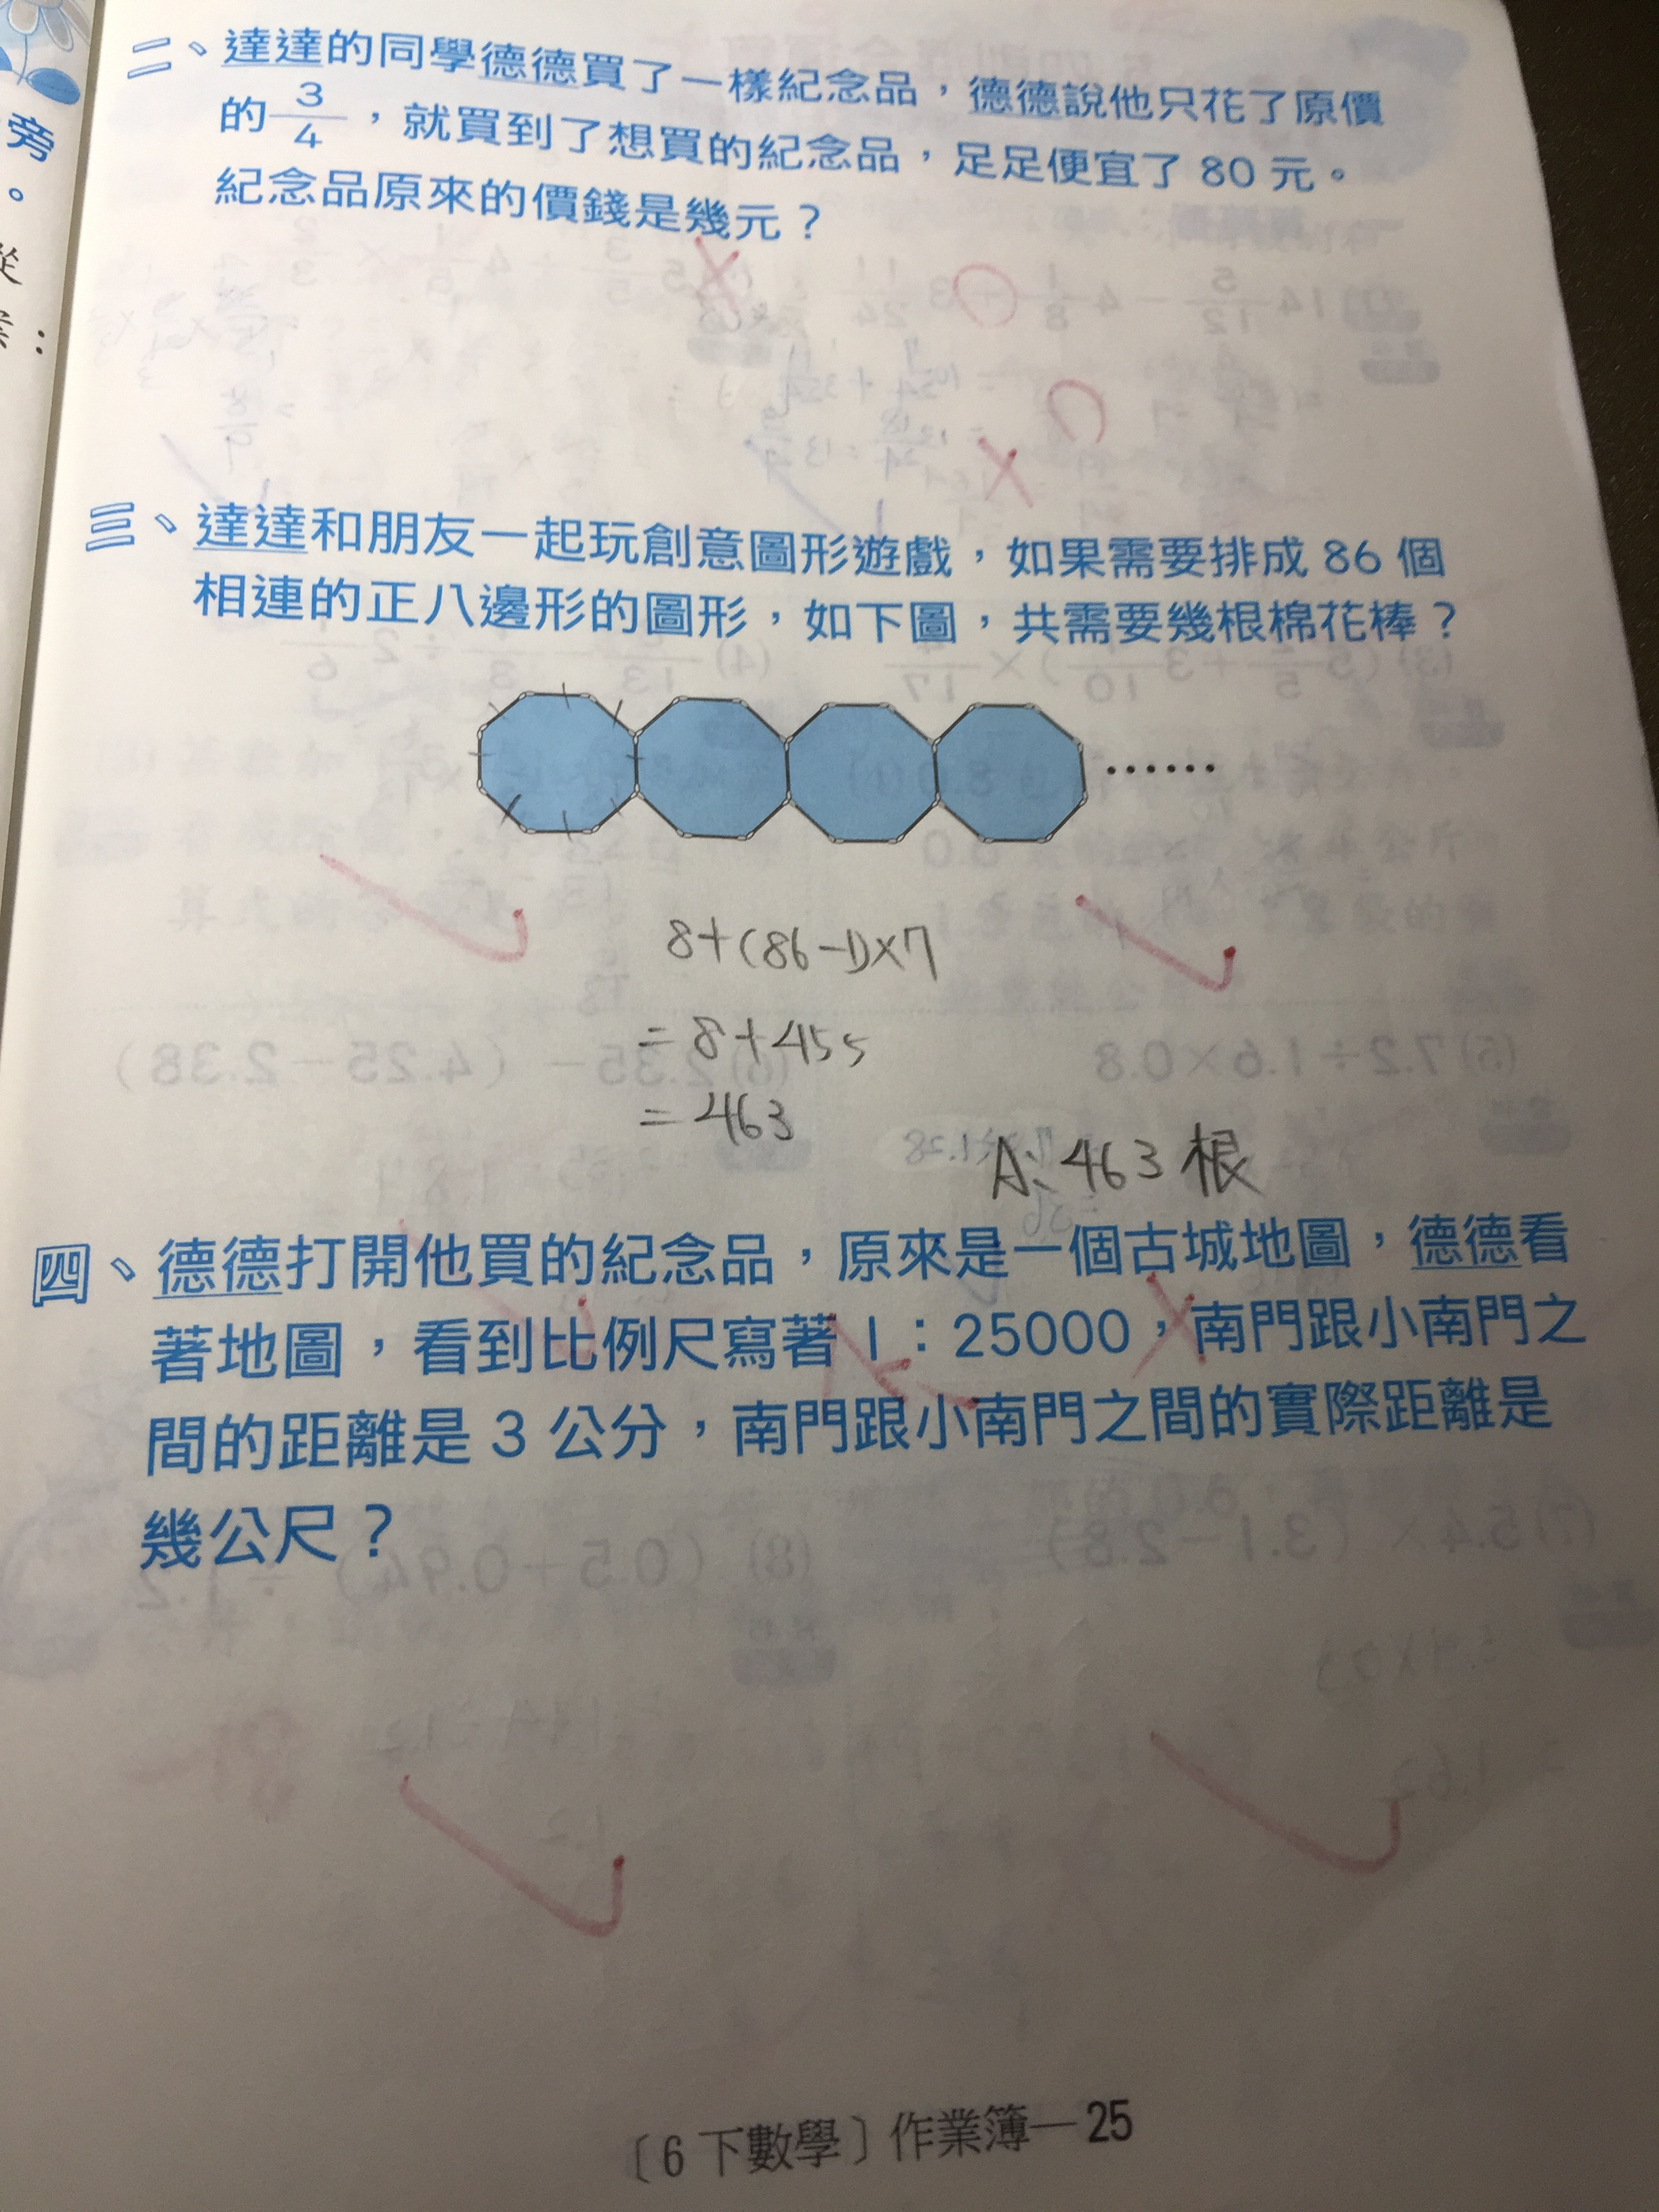 旁
。
二、達達的同學德德買了一樣紀念品，德德說他只花了原價
的3/4，就買到了想買的紀念品，足足便宜了 80 元。
紀念品原來的價錢是幾元？
三、達達和朋友一起玩創意圖形遊戲，如果需要排成 86 個
相連的正八邊形的圖形，如下圖，共需要幾根棉花棒？
……
8+(86-1)×7
=8+455
=463
A:463根
四、德德打開他買的紀念品，原來是一個古城地圖，德德看
著地圖，看到比例尺寫著 1：25000，南門跟小南門之
間的距離是 3 公分，南門跟小南門之間的實際距離是
幾公尺？
〔6 下數學〕作業簿—25